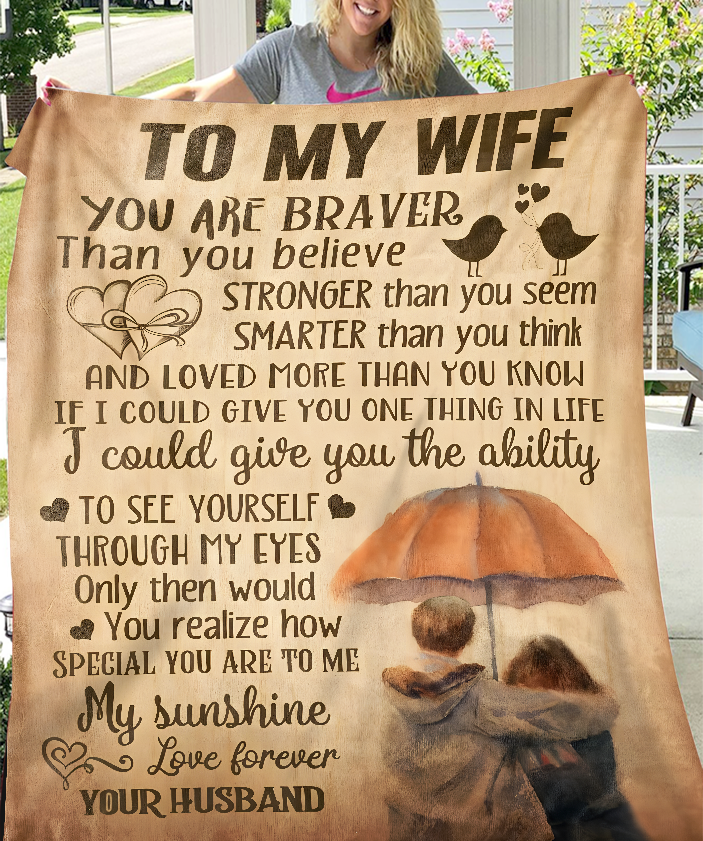 TO MY WIFE
YOU ARE BRAVER
Than you believe
STRONGER than you seem
SMARTER than you think
AND LOVED MORE THAN YOU KNOW
IF I COULD GIVE YOU ONE THING IN LIFE
I could give you the ability
TO SEE YOURSELF
THROUGH MY EYES
Only then would
You realize how
SPECIAL YOU ARE TO ME
My sunshine
Love forever
YOUR HUSBAND